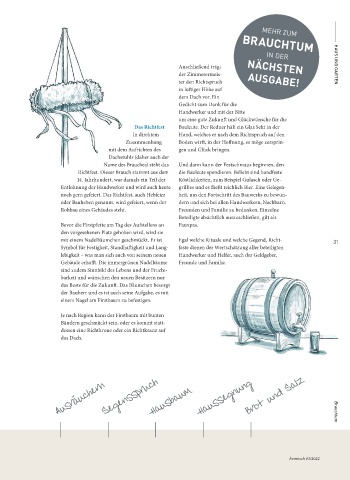 MEHR ZUM
BRAUCHTUM
IN DER
NÄCHSTEN
AUSGABE!
HAUS UND GARTEN
Das Richtfest
In direktem
Zusammenhang
mit dem Aufrichten des
Dachstuhls (daher auch der
Name des Brauches) steht das
Richtfest. Dieser Brauch stammt aus dem
14. Jahrhundert, war damals ein Teil der
Entlohnung der Handwerker und wird auch heute
noch gern gefeiert. Das Richtfest, auch Hebfeier
oder Bauheben genannt, wird gefeiert, wenn der
Rohbau eines Gebäudes steht.
Bevor die Firstpfette am Tag der Aufstellens an
den vorgesehenen Platz gehoben wird, wird sie
mit einem Nadelbäumchen geschmückt. Er ist
Symbol für Festigkeit, Standhaftigkeit und Lang-
lebigkeit – was man sich auch von seinem neuen
Gebäude erhofft. Die immergrünen Nadelbäume
sind zudem Sinnbild des Lebens und der Frucht-
barkeit und wünschen den neuen Besitzern nur
das Beste für die Zukunft. Das Bäumchen besorgt
der Bauherr und es ist auch seine Aufgabe, es mit
einem Nagel am Firstbaum zu befestigen.
Je nach Region kann der Firstbaum mit bunten
Bändern geschmückt sein, oder es kommt statt-
dessen eine Richtkrone oder ein Richtkranz auf
das Dach.
Anschließend trägt
der Zimmermeis-
ter den Richtspruch
in luftiger Höhe auf
dem Dach vor. Ein
Gedicht zum Dank für die
Handwerker und mit der Bitte
um eine gute Zukunft und Glückwünsche für die
Bauleute. Der Redner hält ein Glas Sekt in der
Hand, welches er nach dem Richtspruch auf den
Boden wirft, in der Hoffnung, es möge zersprin-
gen und Glück bringen.
Und dann kann der Festschmaus beginnen, den
die Bauleute spendieren. Beliebt sind bodenfeste
Köstlichkeiten, zum Beispiel Gulasch oder Ge-
grilltes und es fließt reichlich Bier. Eine Gelegen-
heit, um den Fortschritt des Bauwerks zu bewun-
dern und sich bei allen Handwerkern, Nachbarn,
Freunden und Familie zu bedanken. Einzelne
Beteiligte absichtlich auszuschließen, gilt als
Fauxpas.
Egal welche Rituale und welche Gegend, Richt-
feste dienen der Wertschätzung aller beteiligten
Handwerker und Helfer, auch der Geldgeber,
Freunde und Familie.
Ausräuchern
Segensspruch
Hausbaum
Haussegnung
Brot und Salz